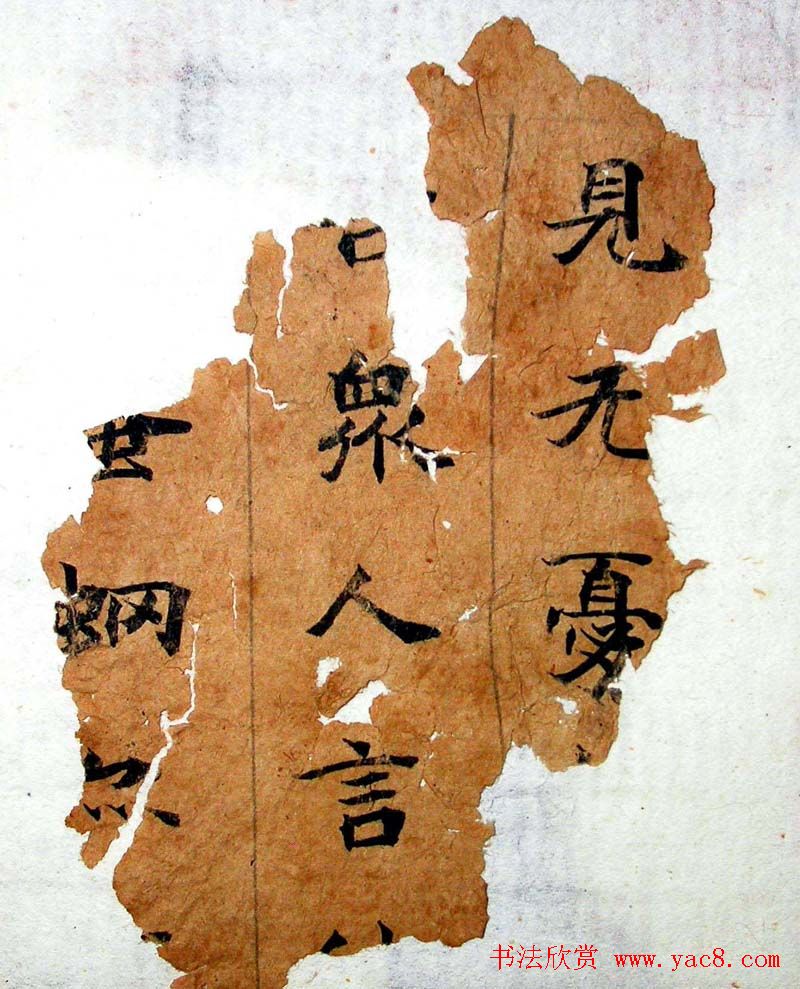 見无憂
衆人言
世蜵
书法欣赏 www.yac8.com